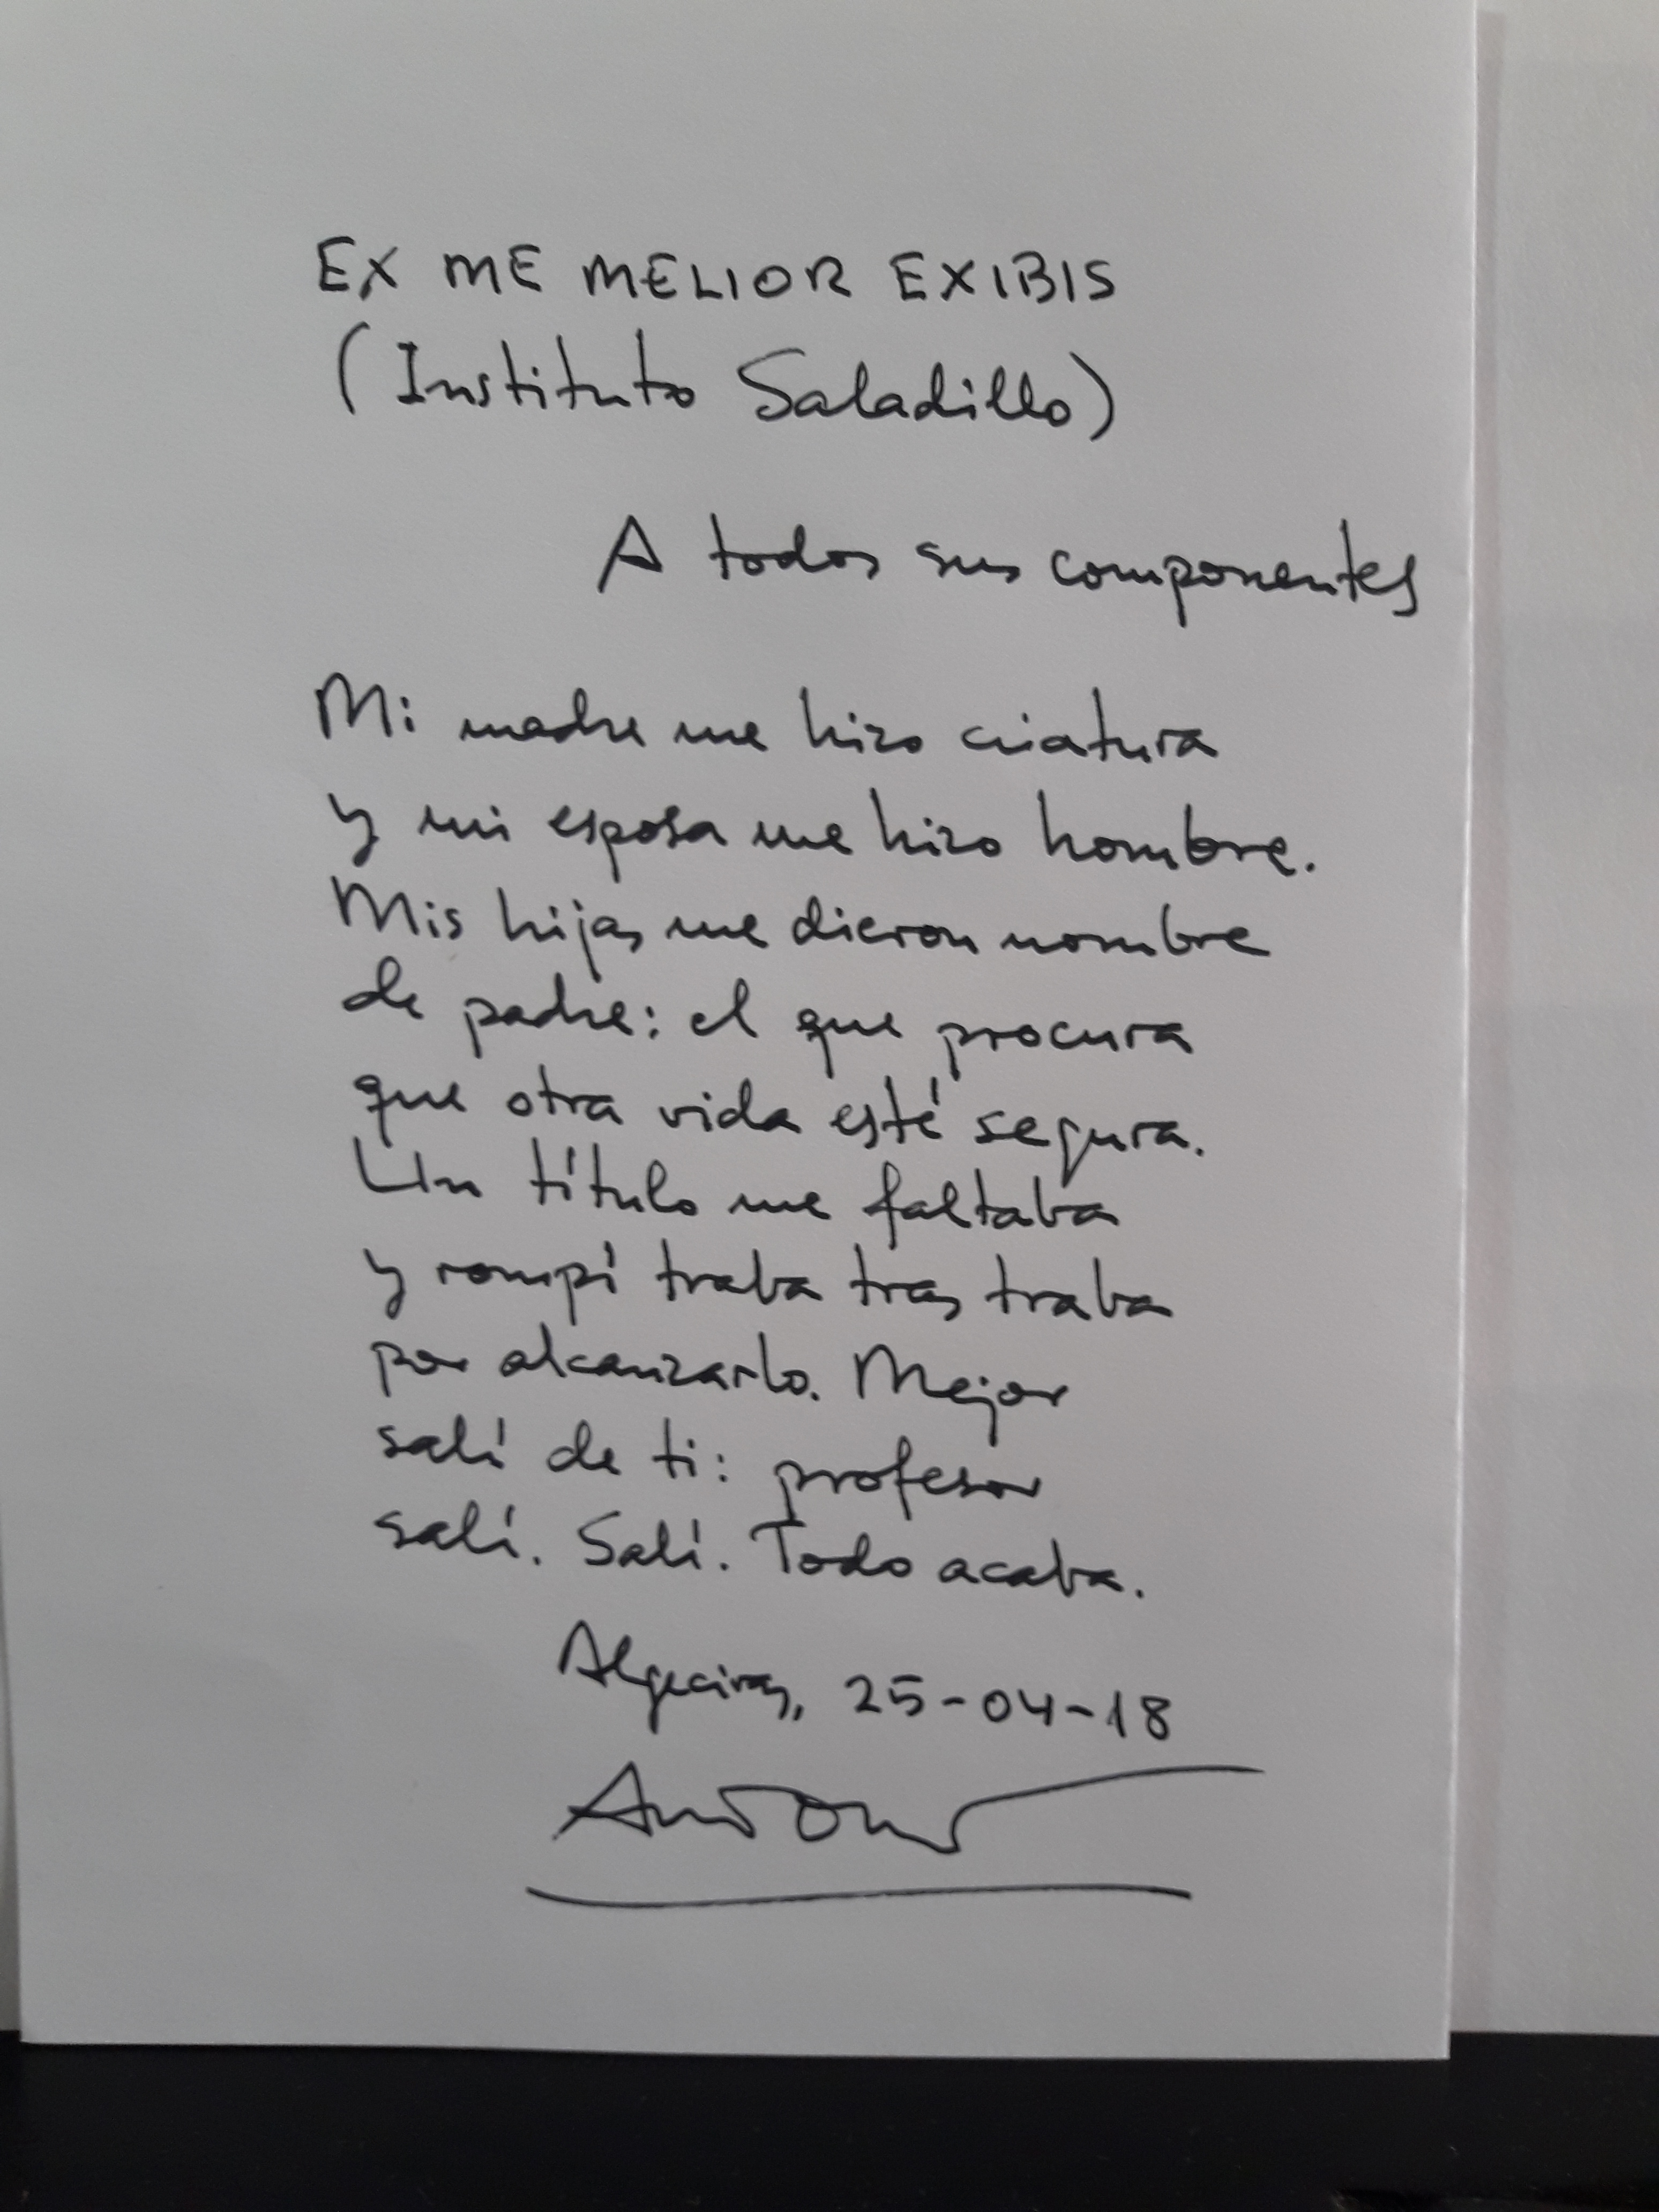 EX ME MELIOR EXIBIS
(Instituto Saladillo)
A todos sus componentes
Mi madre me hizo criatura
y mi esposa me hizo hombre.
Mis hijas me dieron nombre
de padre: el que procura
que otra vida esté segura.
Un título me faltaba
y rompí traba tras traba
por alcanzarlo. Mejor
salí de ti: profesor
salí. Salí. Todo acaba.
Algeciras, 25-04-18